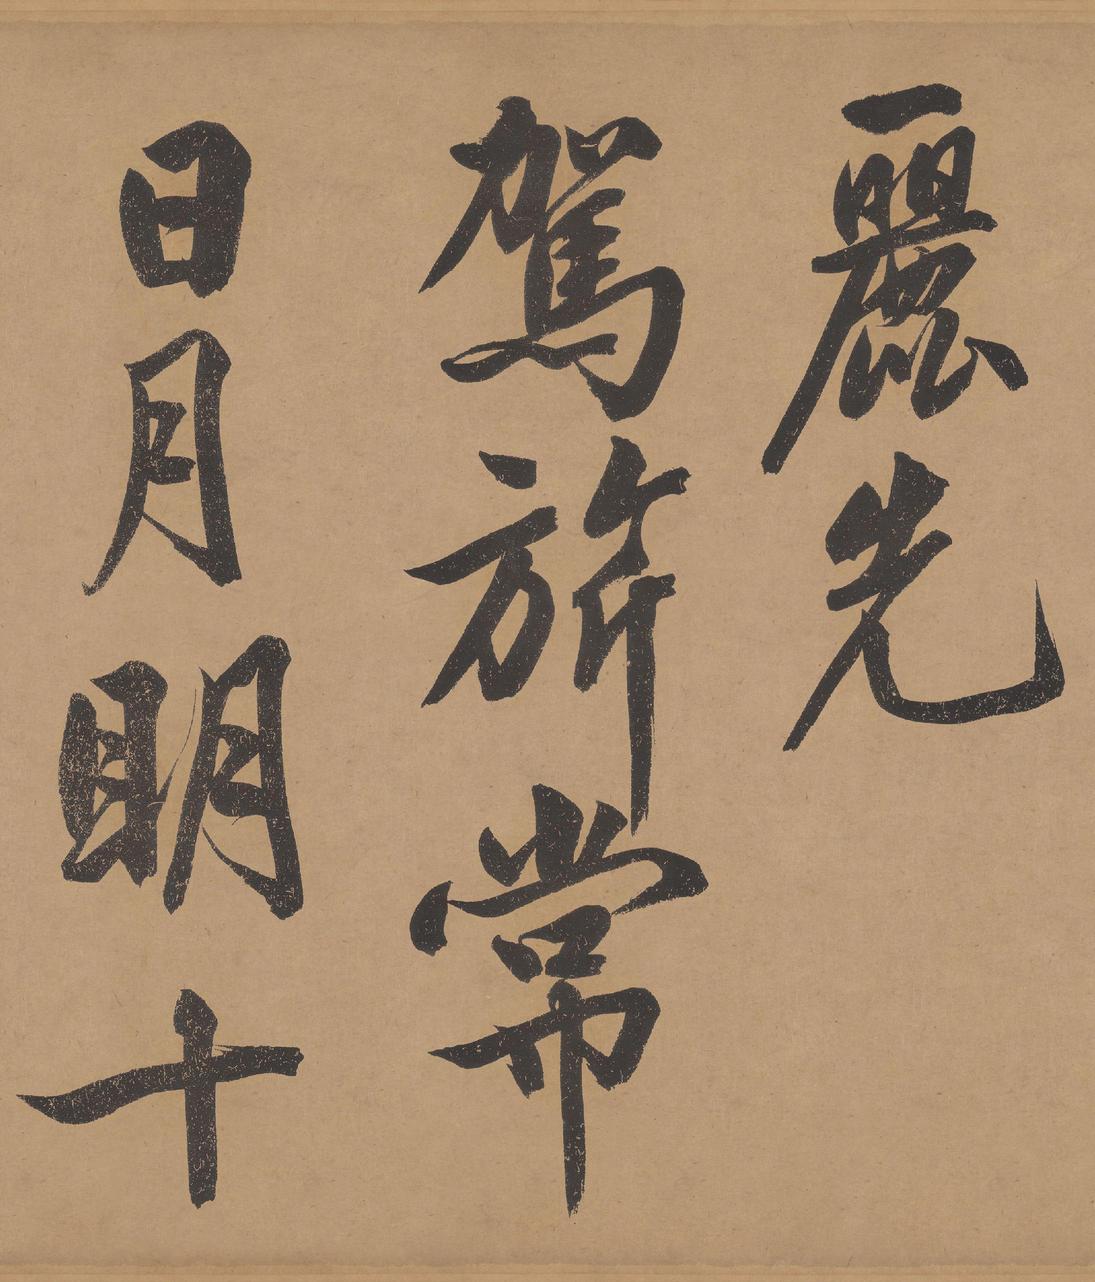 麗先
駕旂常
日月明十